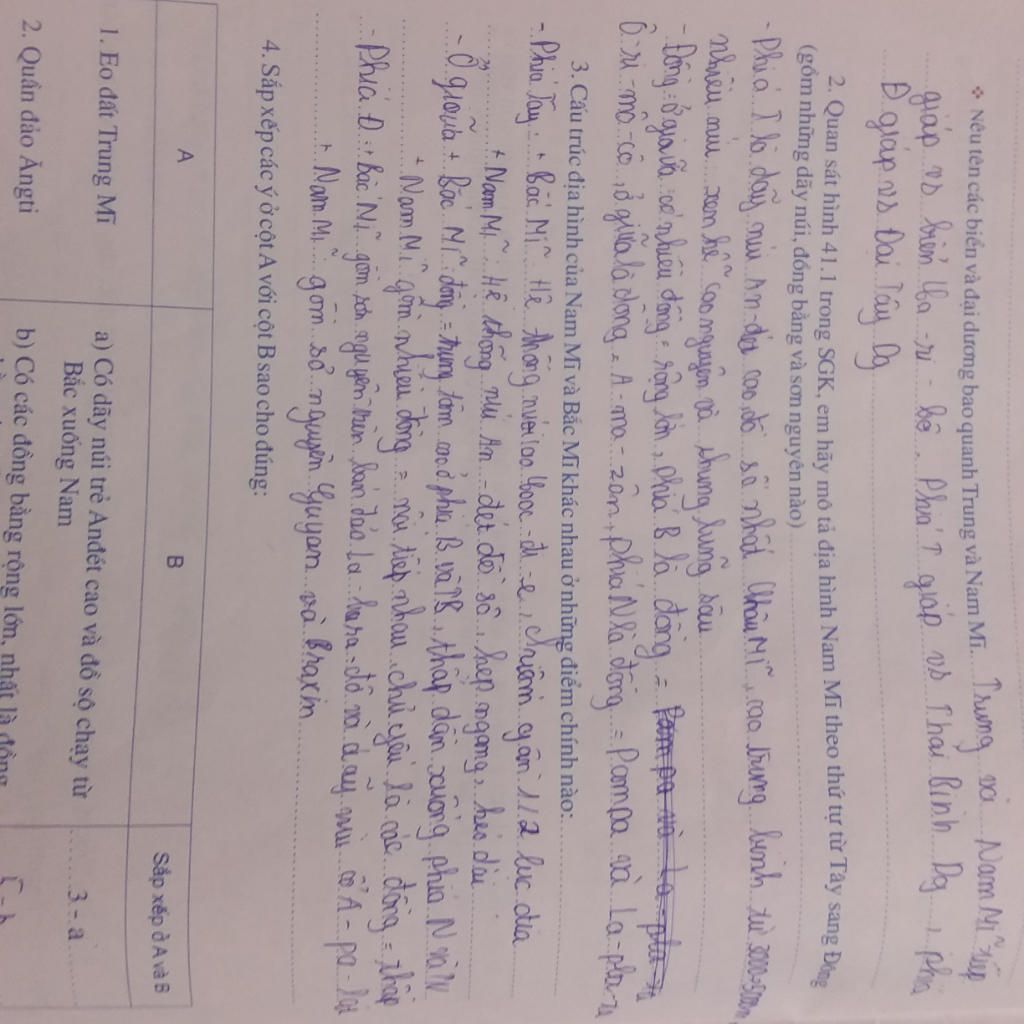 ❖ Nêu tên các biển và đại dương bao quanh Trung và Nam Mĩ. Trung và Nam Mĩ tiếp
giáp vs biển Ca-ri-bê. Phía T giáp vs Thái Bình Dg, phía
Đ giáp vs Đại Tây Dg
2. Quan sát hình 41.1 trong SGK, em hãy mô tả địa hình Nam Mĩ theo thứ tự từ Tây sang Đông
(gồm những dãy núi, đồng bằng và sơn nguyên nào)
- Phía T là dãy núi An-đét cao, đồ sộ nhất Châu Mĩ, cao trung bình từ 3000-5000m,
nhiều núi xen kẽ cao nguyên và thung lũng sâu
- Đồng = ở giữa có nhiều đồng = rộng lớn, phía B là đồng =
Ô-ri-nô-cô, ở giữa là đồng = A-ma-zôn, phía N là đồng = Pampa và La-pla-ta
3. Cấu trúc địa hình của Nam Mĩ và Bắc Mĩ khác nhau ở những điểm chính nào:
- Phía Tây: + Bắc Mĩ Hệ thống núi Cooc-đi-e, chiếm gần 1/2 lục địa
+ Nam Mĩ: Hệ thống núi An-đét đồ sộ, hẹp ngang, kéo dài
- Ở giữa + Bắc Mĩ: đồng = trung tâm cao ở phía B và TB, thấp dần xuống phía N và
+ Nam Mĩ gồm nhiều đồng = nối tiếp nhau, chủ yếu là các đồng = thấp
- Phía Đ: + Bắc Mĩ gồm sơn nguyên trên bán đảo La-bra-đô và dãy núi cổ A-pa-lat
+ Nam Mĩ gồm sơ nguyên Guyan và Braxin
4. Sắp xếp các ý ở cột A với cột B sao cho đúng:
A B Sắp xếp ở A và B
1. Eo đất Trung Mĩ a) Có dãy núi trẻ Anđét cao và đồ sộ chạy từ 3 - a
Bắc xuống Nam
2. Quần đảo Ăngti b) Có các đồng bằng rộng lớn, nhất là đồng